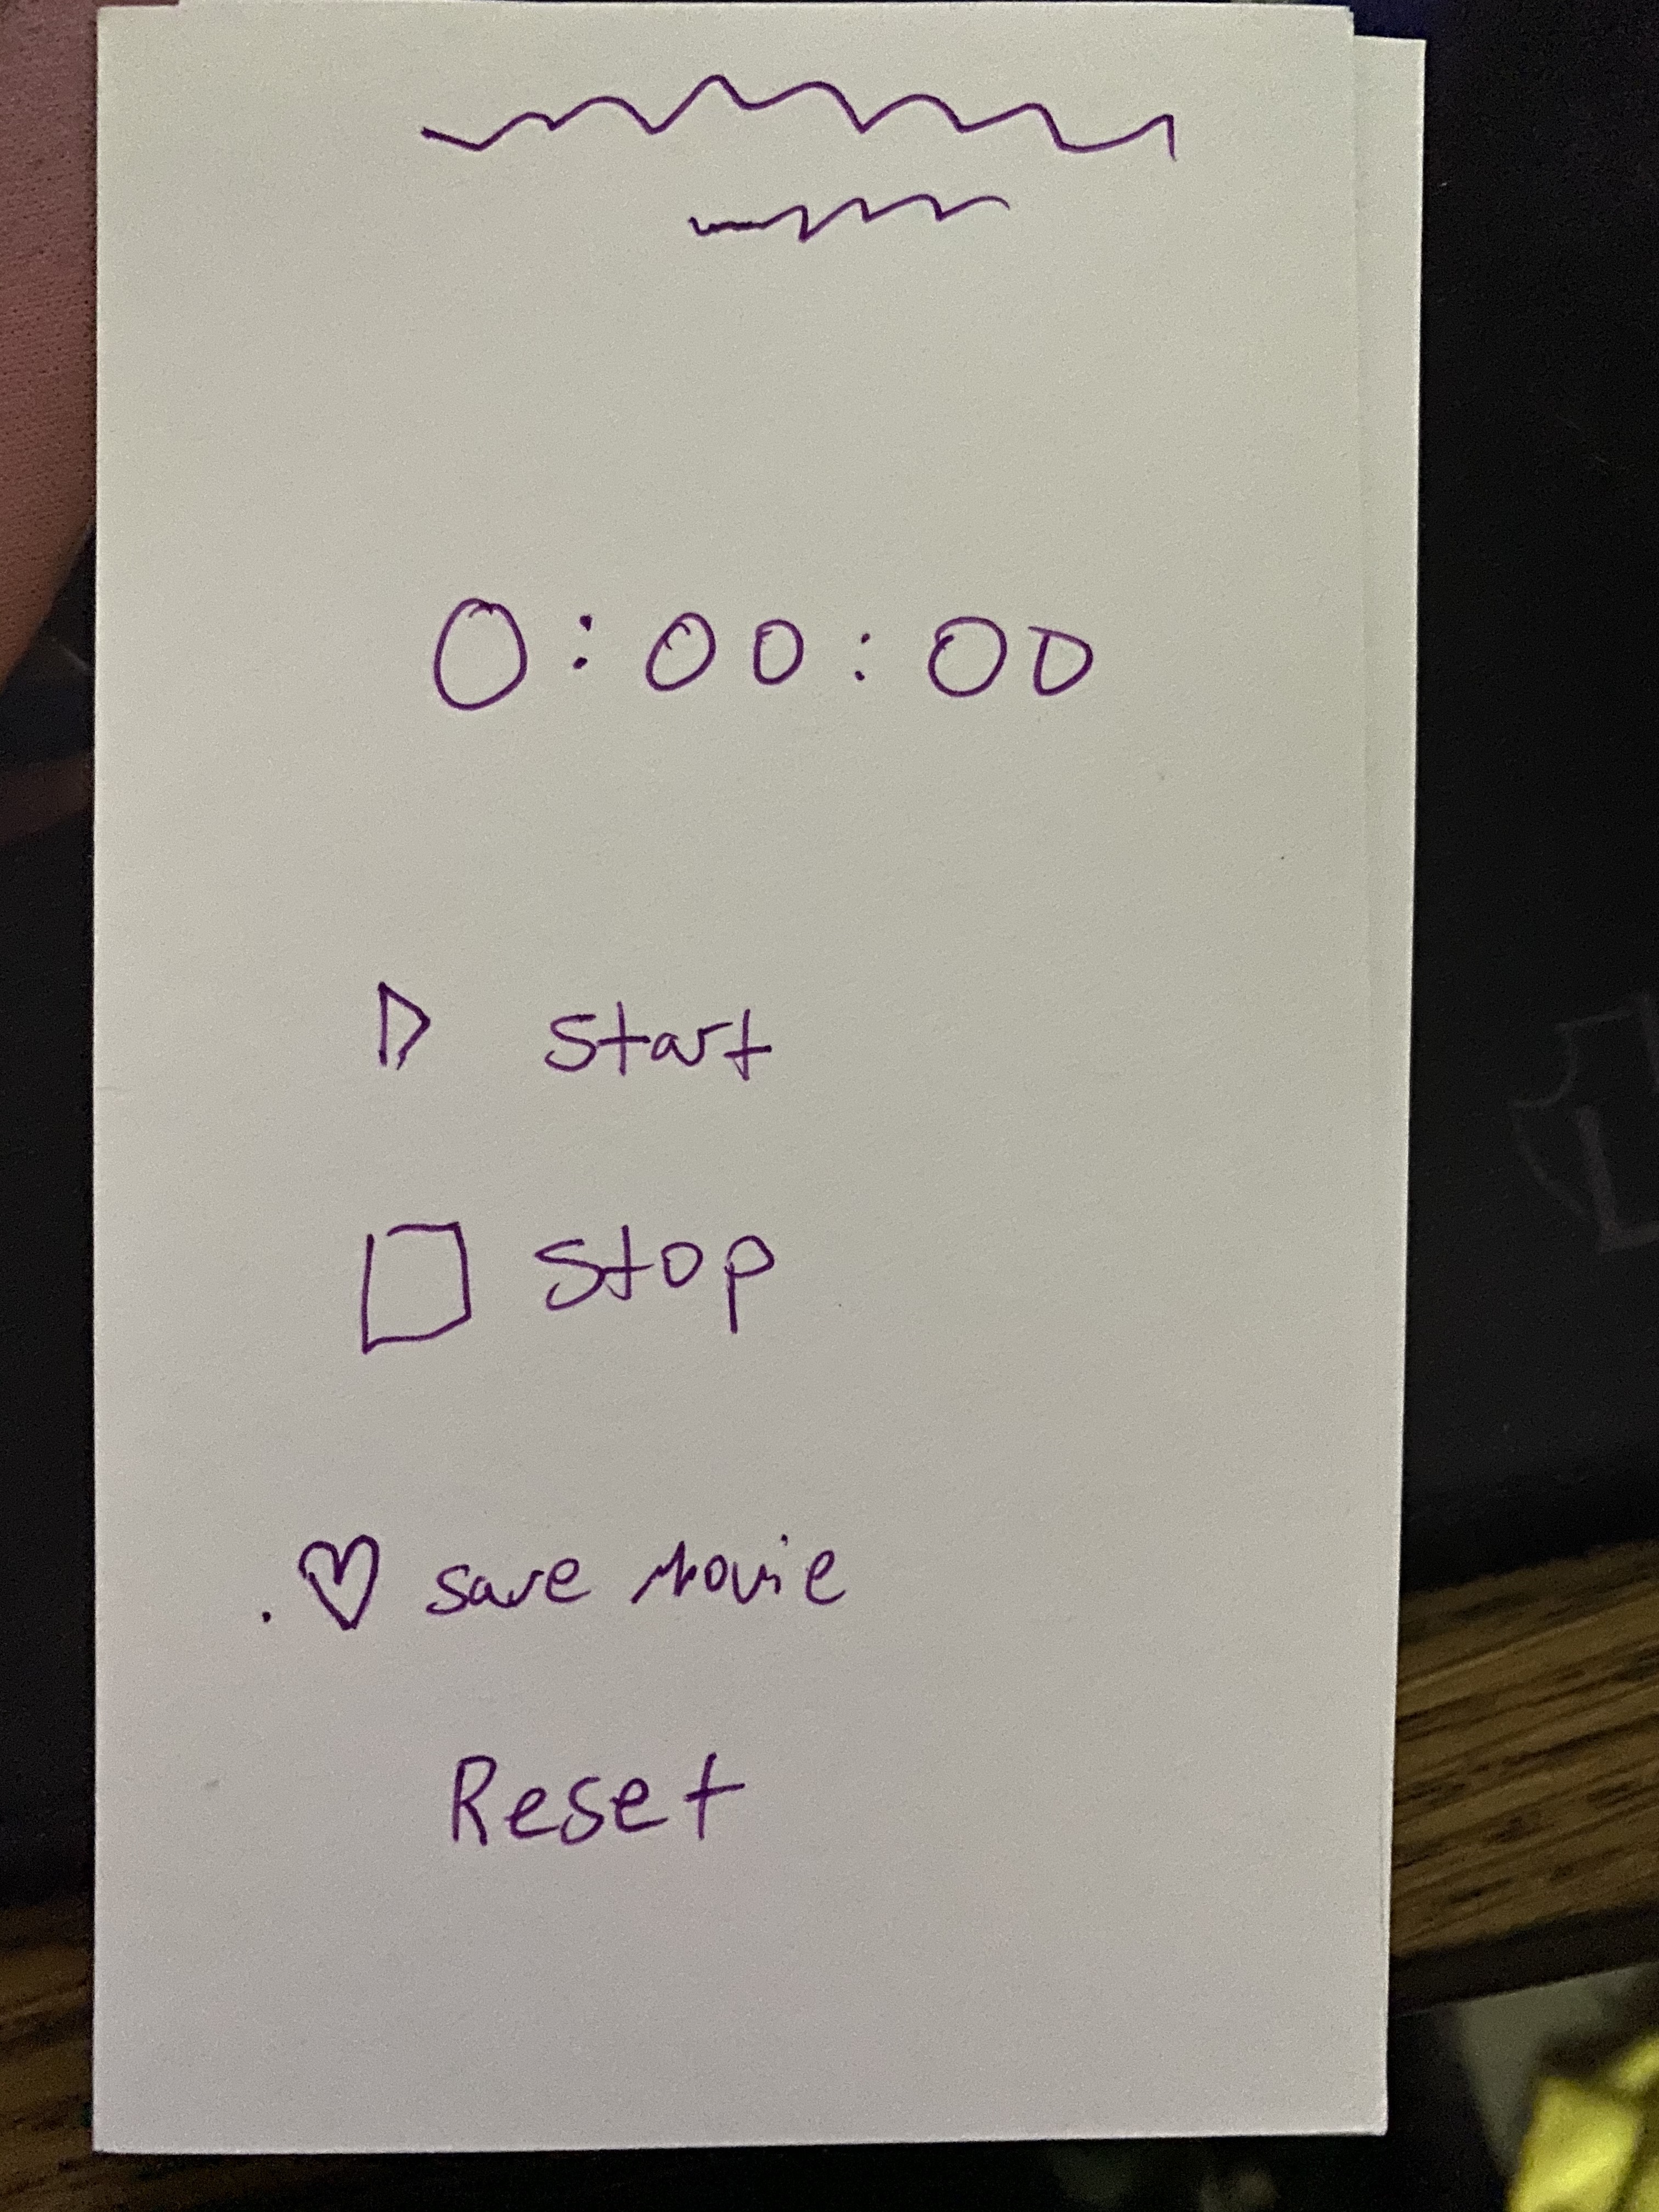 0:00:00
Start
Stop
save Movie
Reset